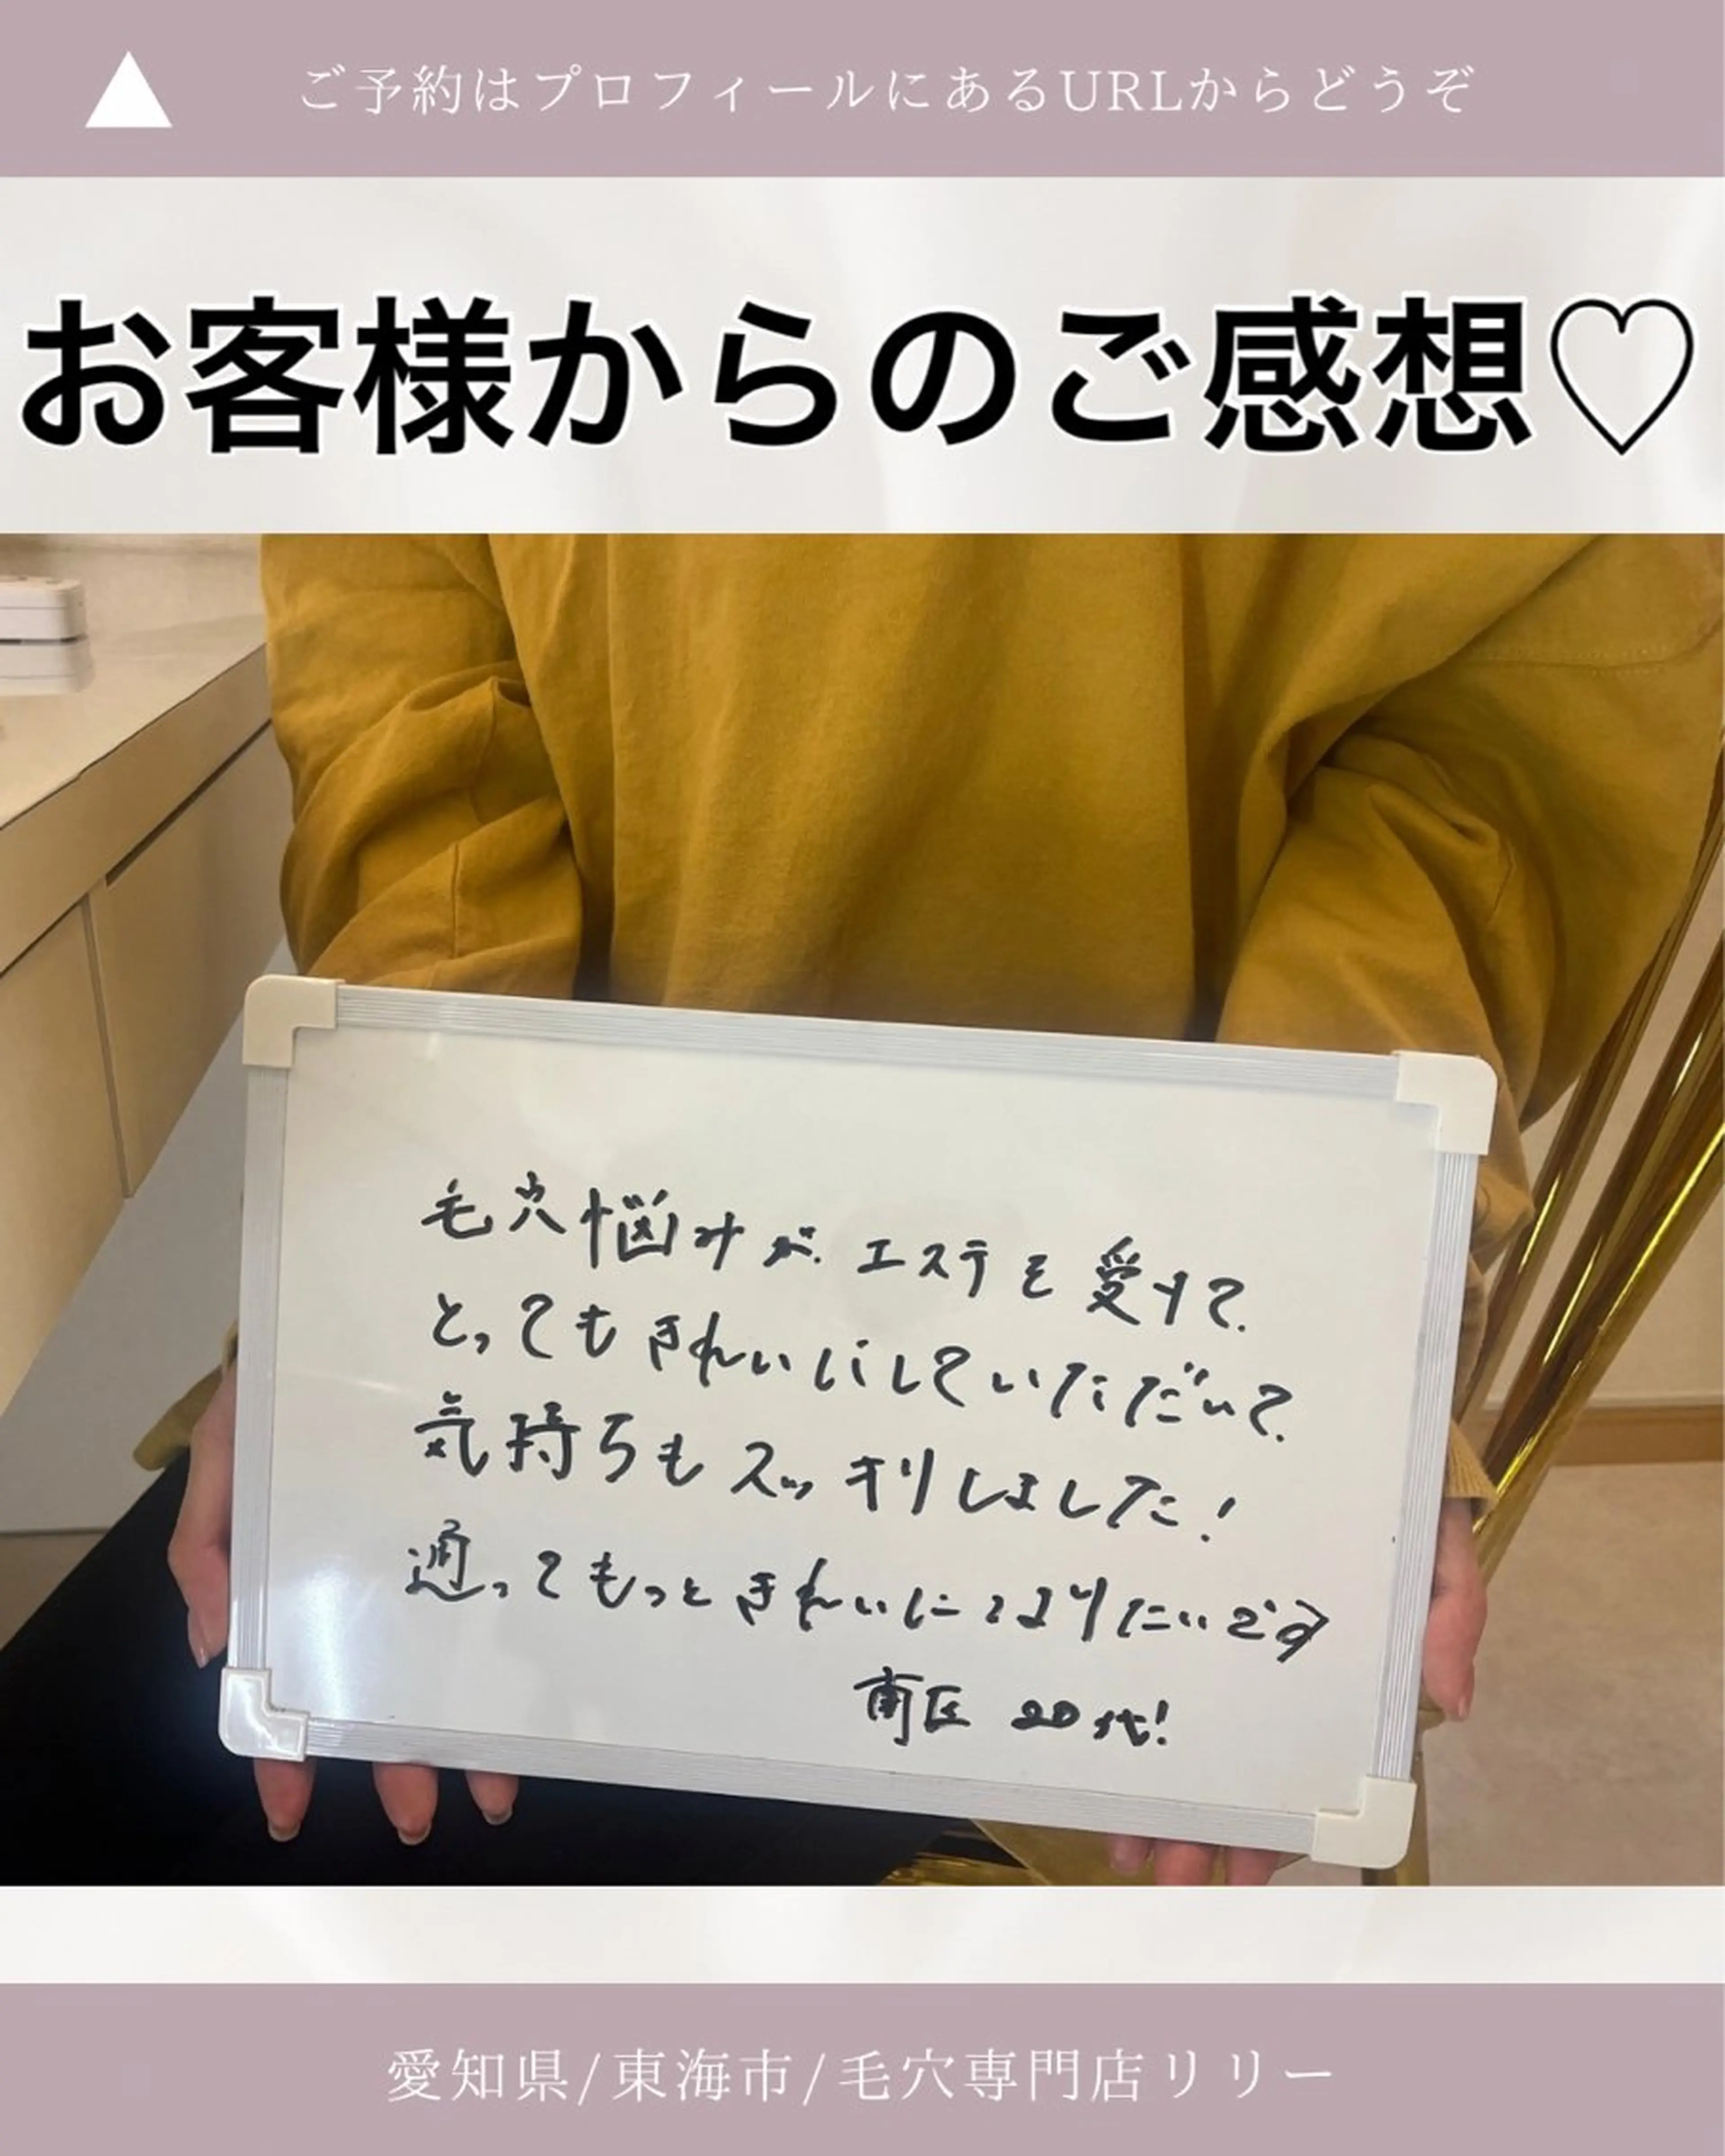 ▲ ご予約はプロフィールにあるURLからどうぞ
お客様からのご感想♡
毛穴悩みが、エステを受けて、
とってもきれいにしていただいて、
気持ちもスッキリしました!
通ってもっときれいになりたいです
南区 20代!
愛知県/東海市/毛穴専門店リリー